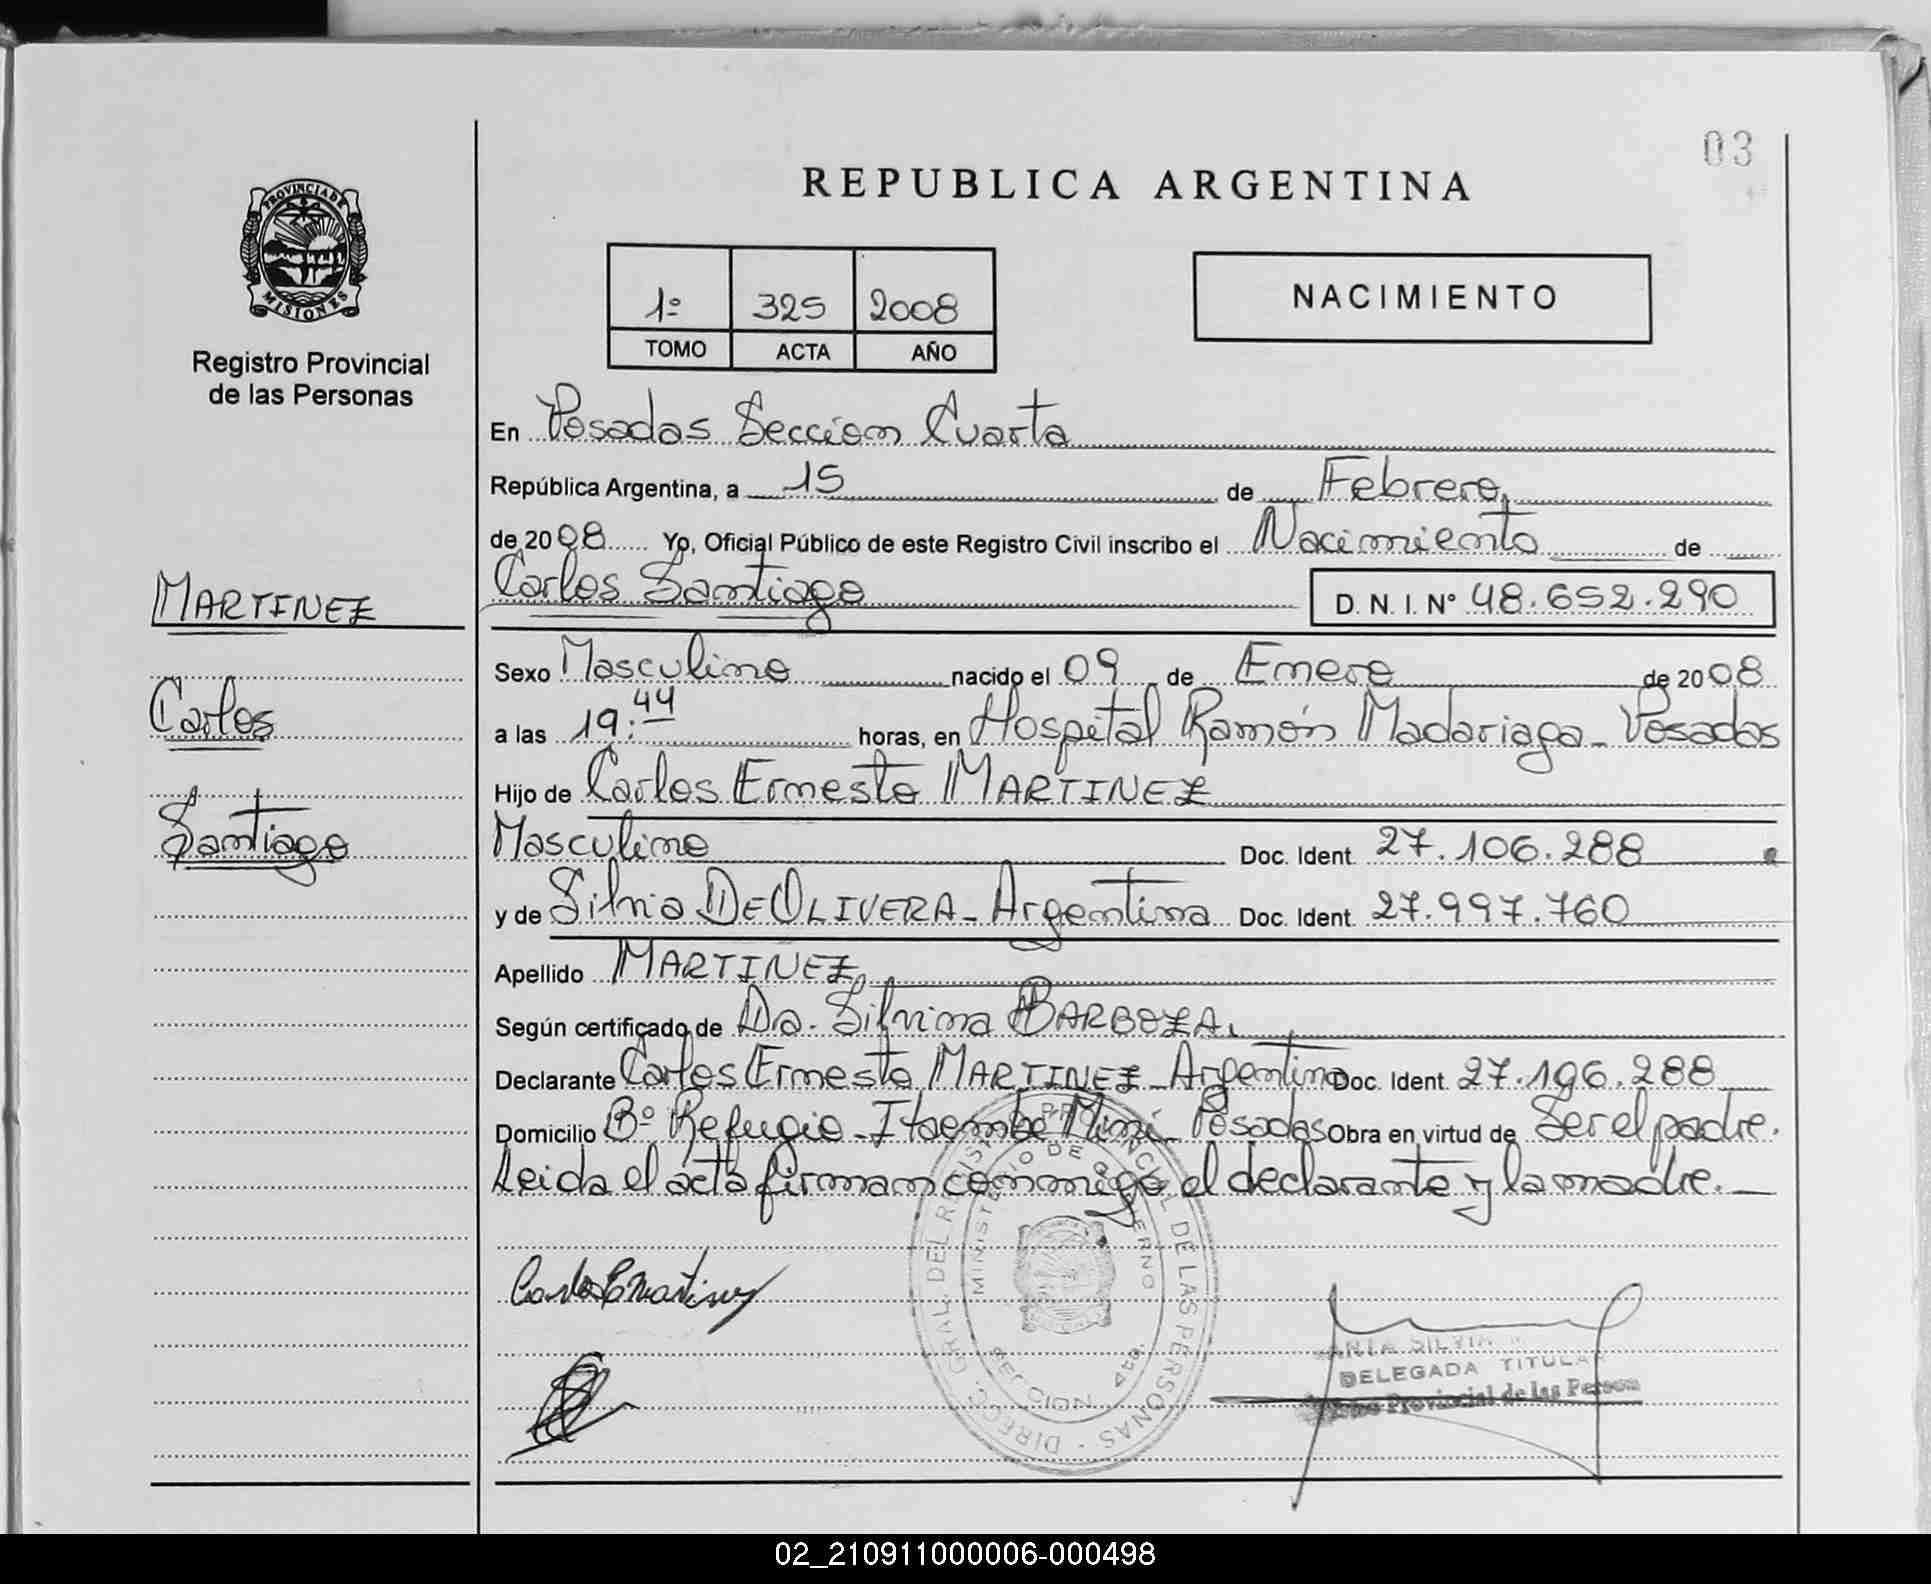 03
REPUBLICA ARGENTINA
PROVINCIA DE
MISIONES
Registro Provincial
de las Personas
1º 325 2008
TOMO ACTA AÑO
NACIMIENTO
En Posadas Seccion Cuarta
República Argentina, a 15 de Febrero
de 2008 Yo, Oficial Público de este Registro Civil inscribo el Nacimiento de
Carlos Santiago D. N. I. Nº 48.652.290
MARTINEZ
Carlos
Santiago
Sexo Masculino nacido el 09 de Enero de 2008
a las 19:44 horas, en Hospital Ramón Madariaga - Posadas
Hijo de Carlos Ernesto MARTINEZ
Masculino Doc. Ident 27.106.288
y de Silvia DE OLIVERA - Argentina Doc. Ident. 27.997.760
Apellido MARTINEZ
Según certificado de Dra. Silvina BARBOZA.
Declarante Carlos Ernesto MARTINEZ - Argentino Doc. Ident. 27.196.288
Domicilio Bº Refugio - Itaembe Miní - Posadas Obra en virtud de Ser el padre.
Leida el acta firman conmigo el declarante y la madre.
DIRECC. GRAL. DEL REGISTRO PROVINCIAL DE LAS PERSONAS
MINISTERIO DE GOBIERNO
SECCION 4ta.
Carlos E Martinez
SILVIA
DELEGADA TITULA
Provincial de las Person
02_210911000006-000498